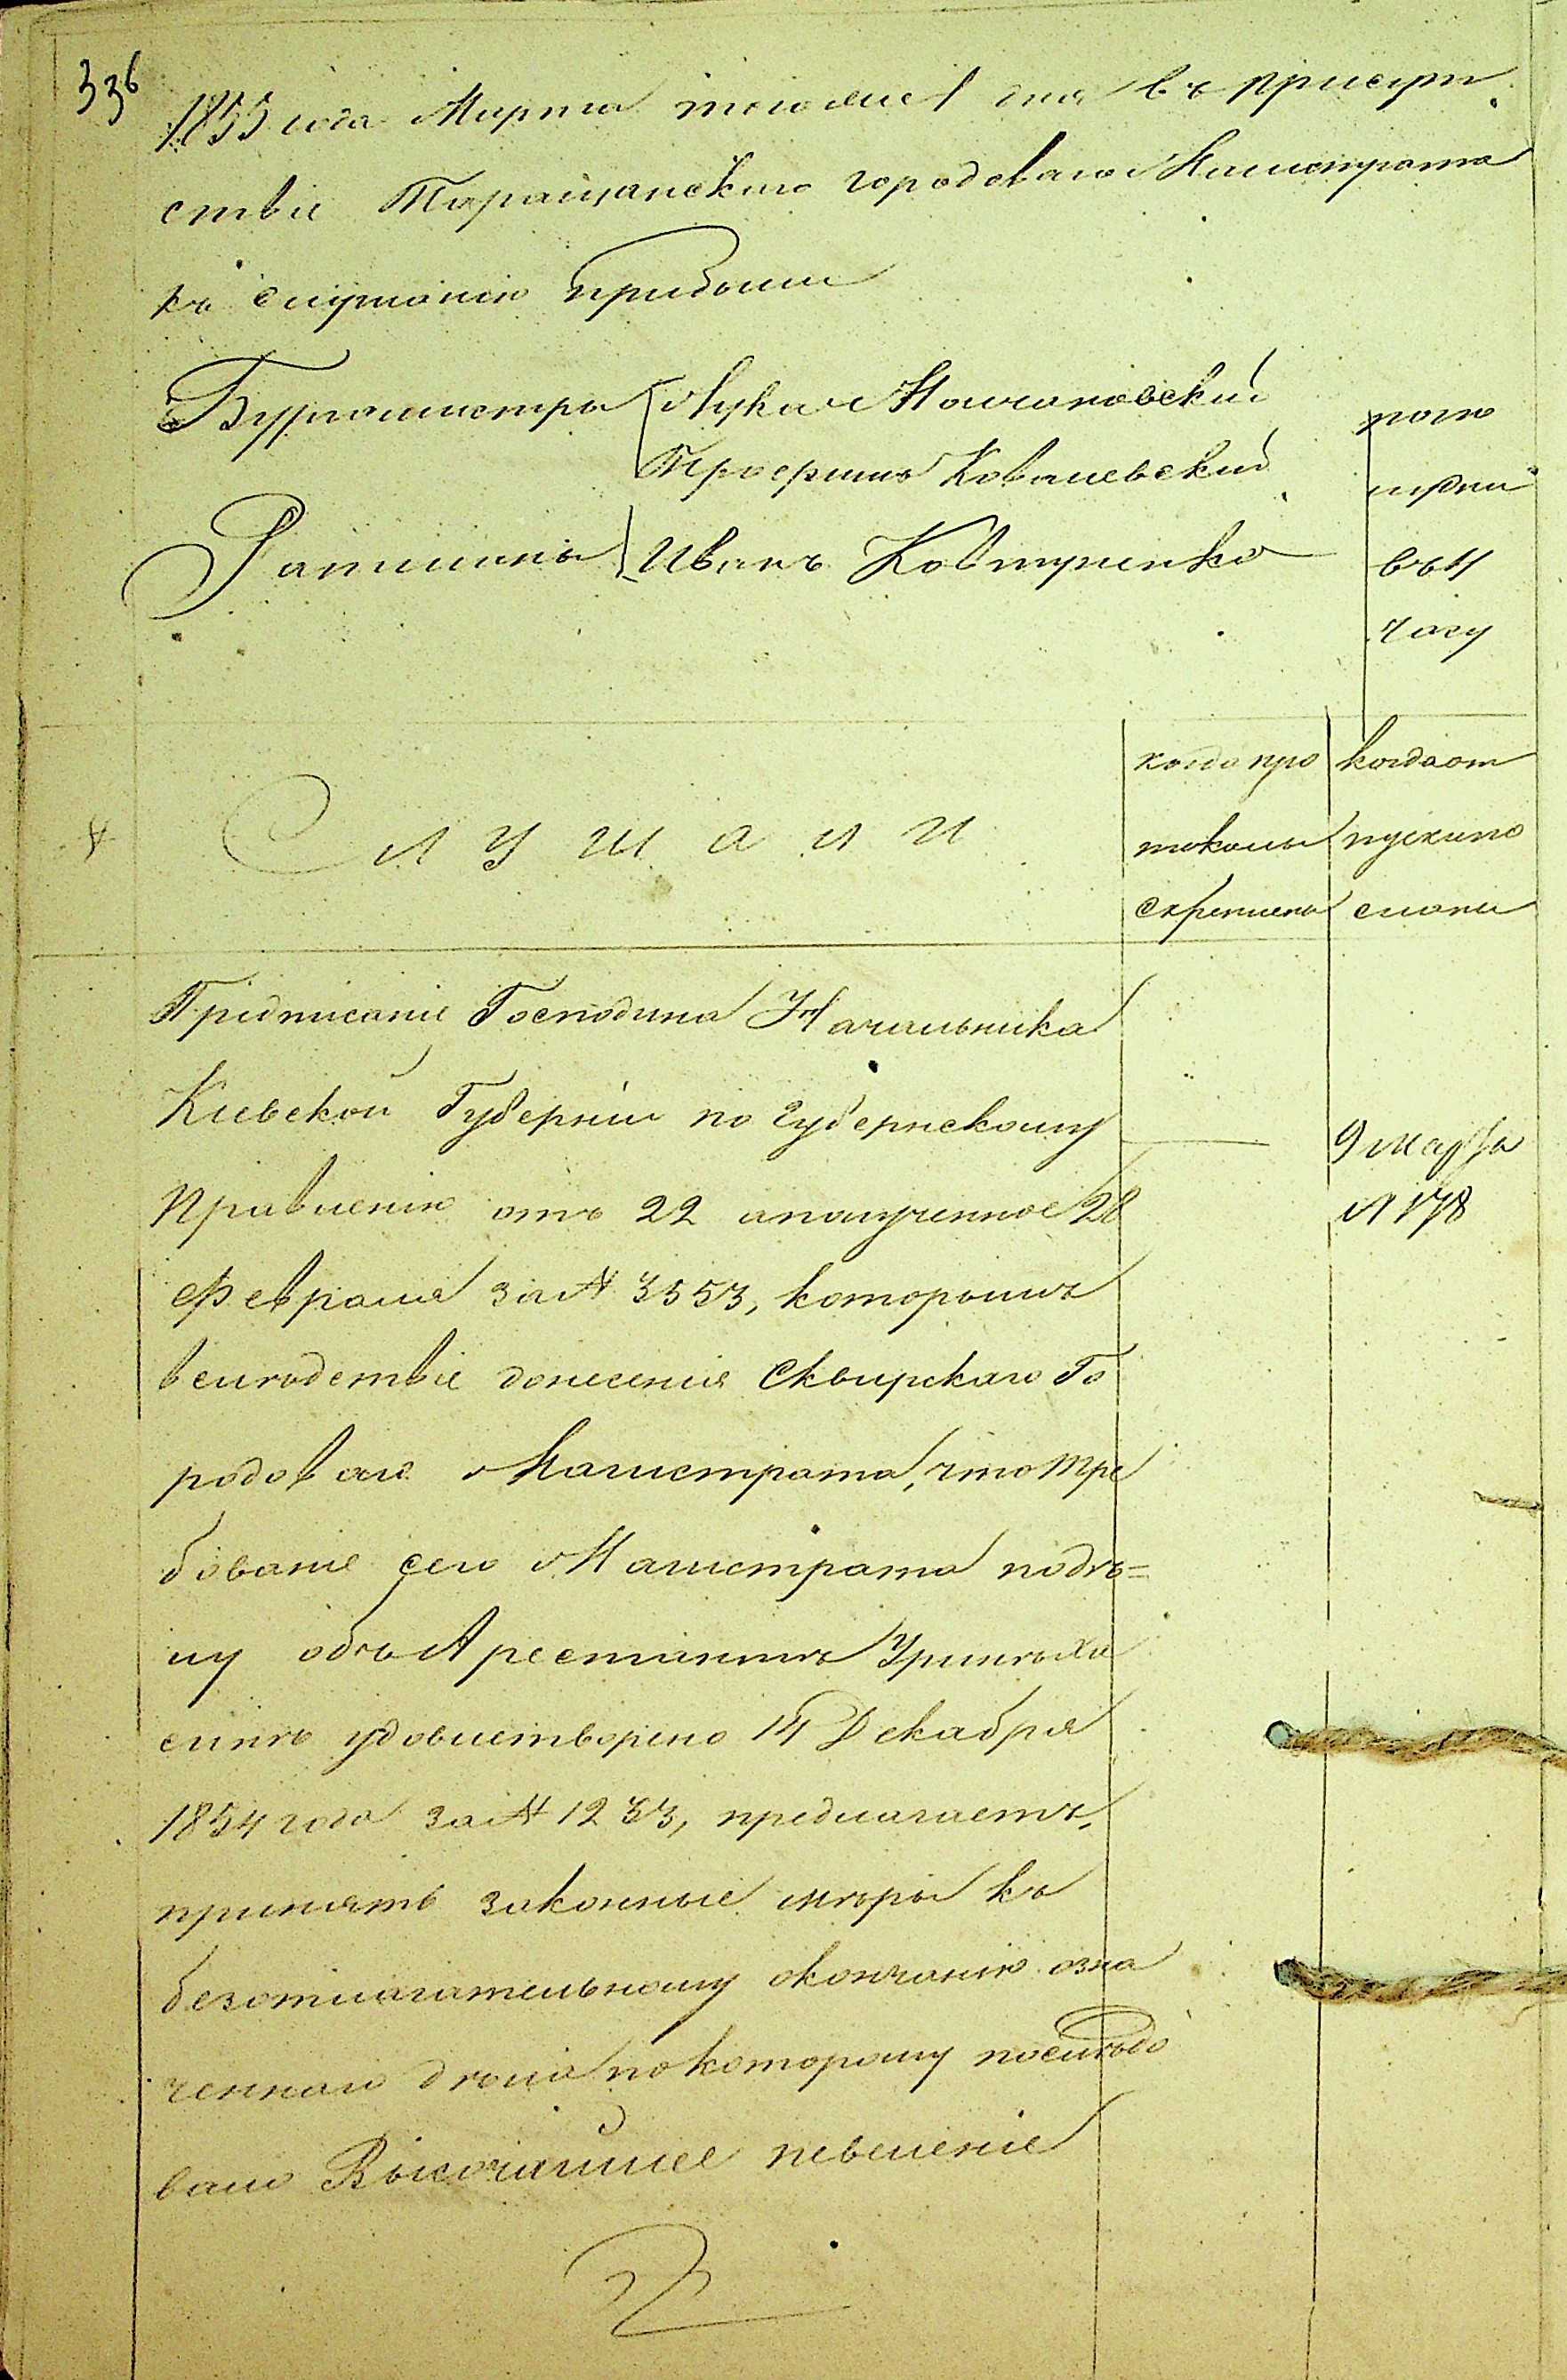 336
1855 года Марта дня въ присут
ствіе Таращанскаго городоваго Магистрата
къ слушанію прибыли
Бургомистры Лука
Ковалевскій
Ратманъ Иванъ Ковтуненко
по
утру
въ 11
часу
Слушали
когда про
токолы
скреплены
когда от
пуски по
сланы
Предписаніе Господина Начальника
Кіевской Губерніи по Губернскому
Правленію отъ 22 а полученное 28
Февраля за № 3553, которымъ
вслѣдствіе донесенія Сквирскаго Го
родоваго Магистрата, что тре
бованіе сего Магистрата по дѣ=
лу объ Арестантѣ
удовлетворено 14 Декабря
1854 года за № 1233, предлагаетъ,
принять законные мѣры къ
безотлагательному окончанію озна
ченнаго дѣла по которому послѣдо
вало Высочайшее повеленіе
9 марта
№ 178